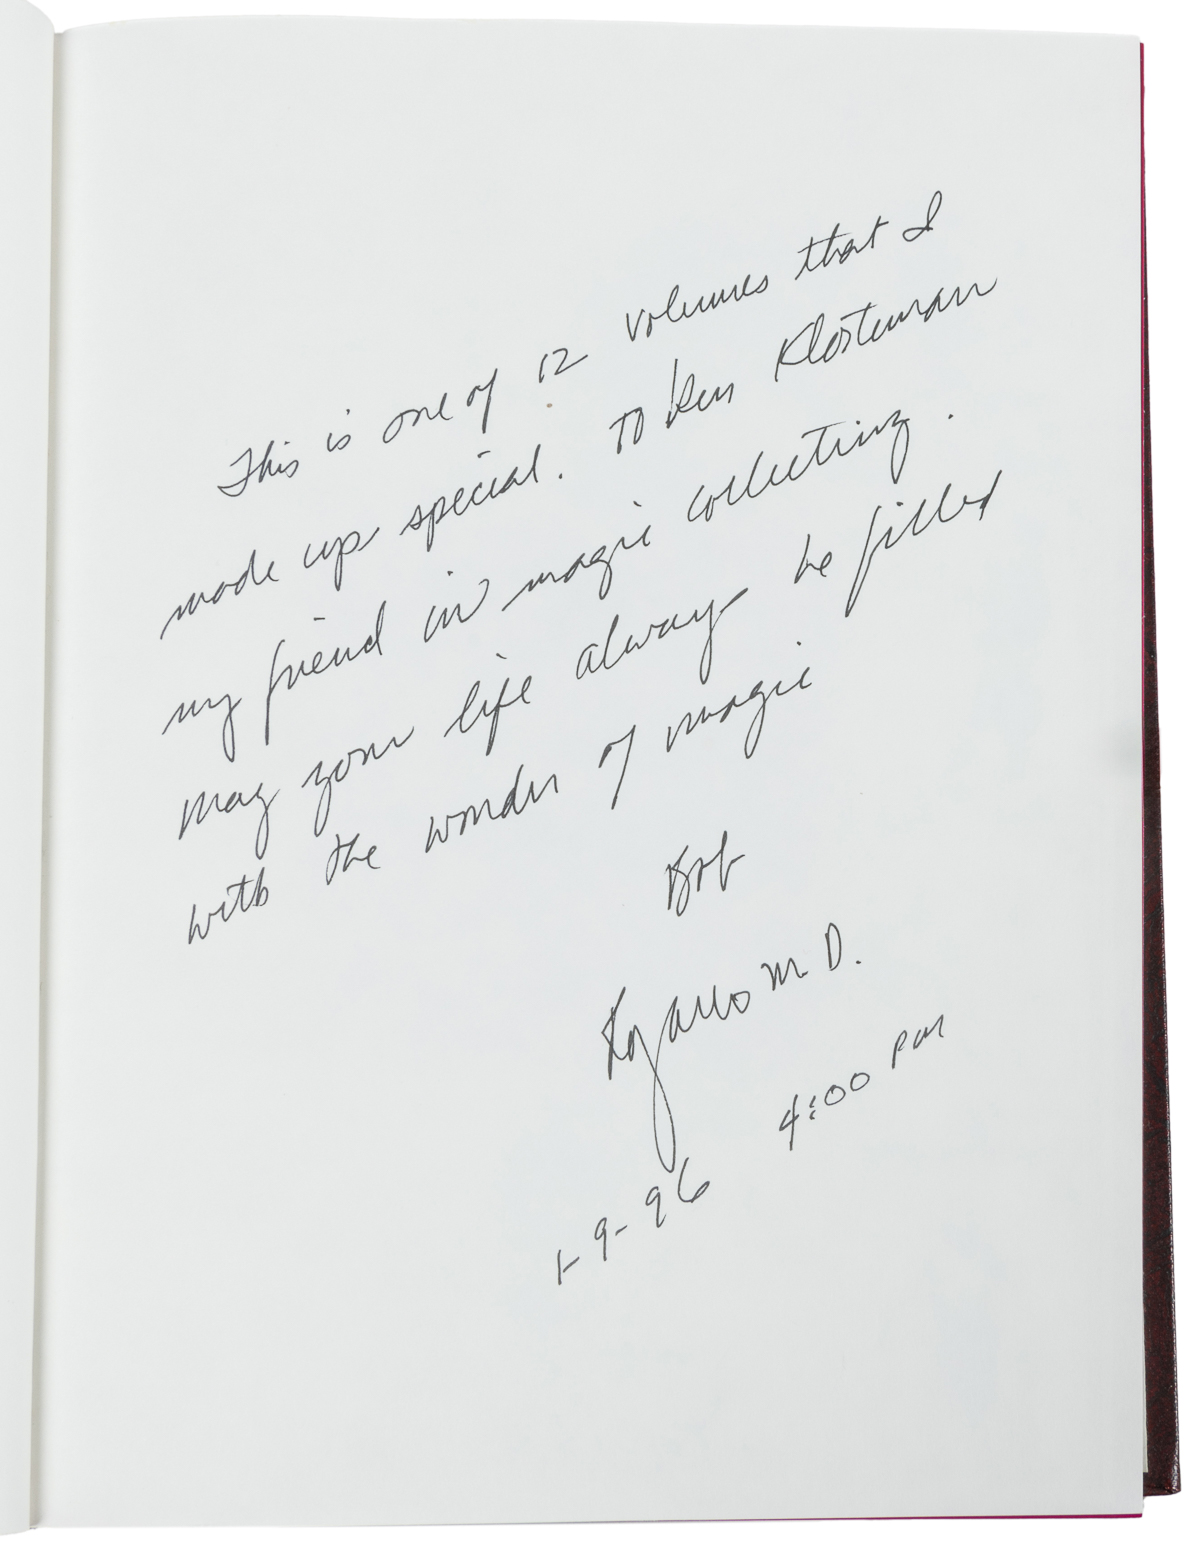 This is one of 12 volumes that I
made up special. To Ken Klosterman
my friend in magic collecting.
May your life always be filled
with the wonder of magic
Bob
M.D.
1-9-96 4:00 PM